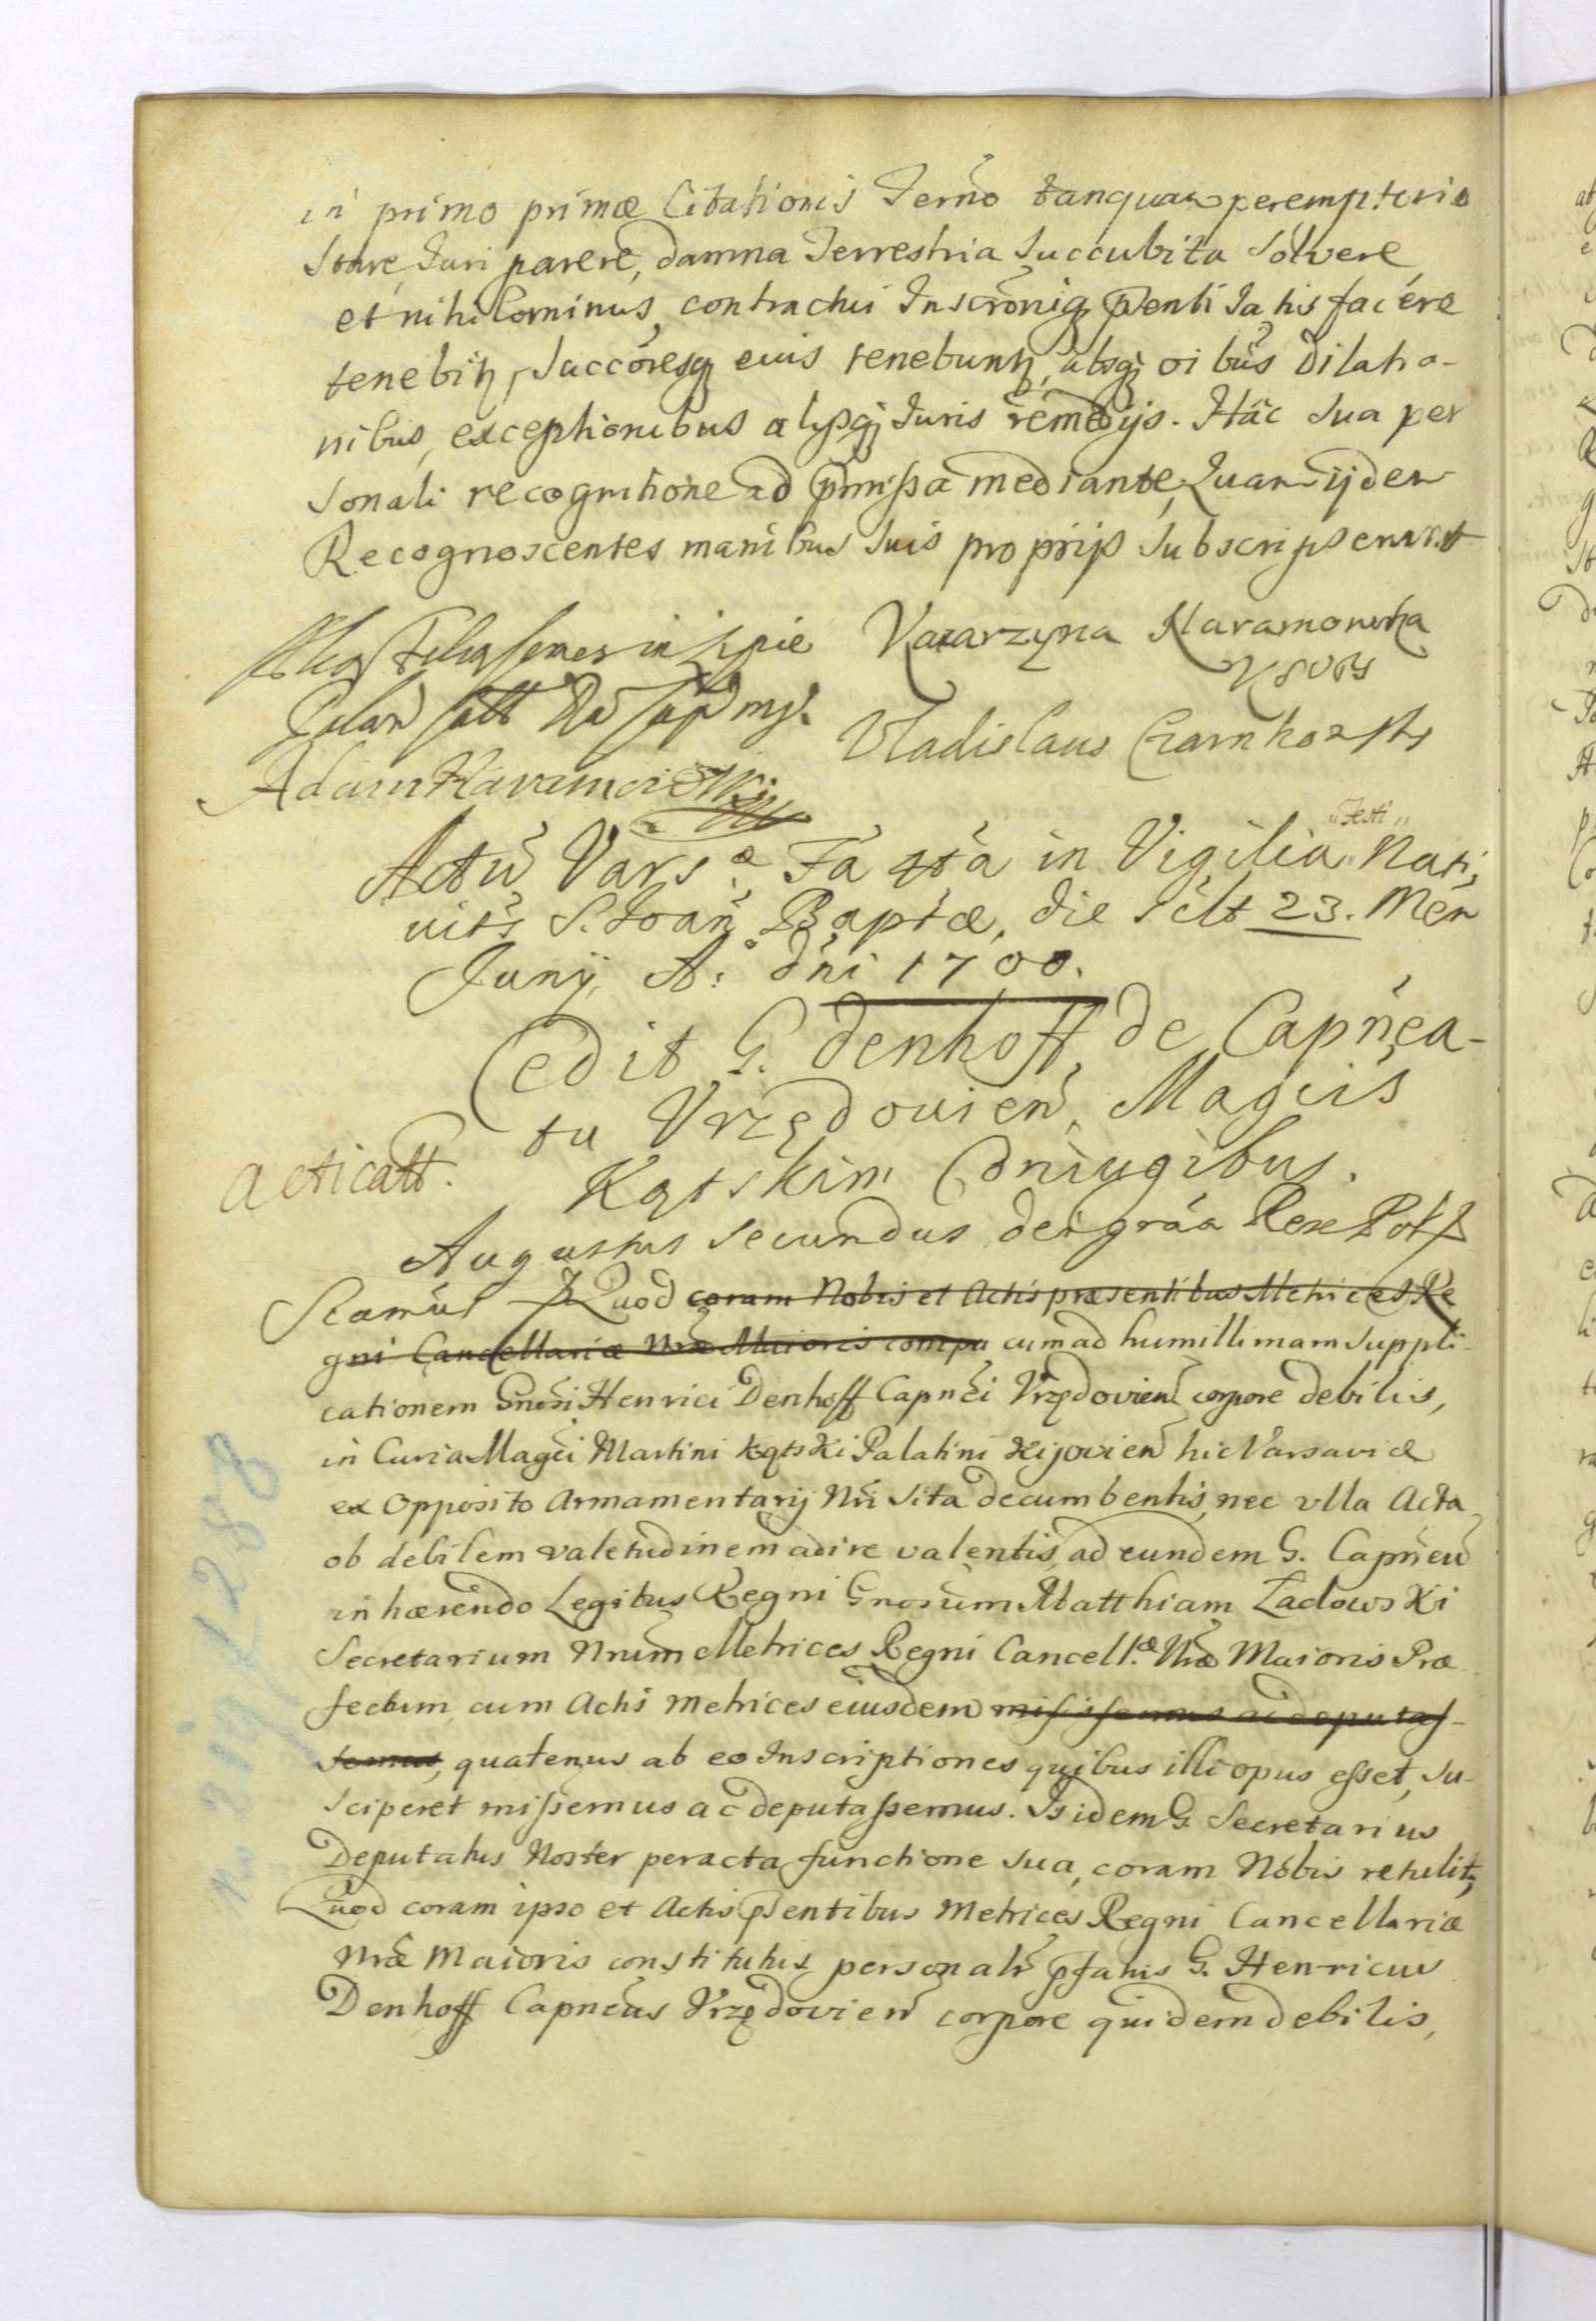 in primo primæ Citationis Termo tanquam peremptorio
stare, Juri parere, damna Terrestria succubita solvere
et nihilominus, contractui Inscronique pnti satisfacere
tenebitur, Succoresque euis tenebuntur, absque oibus Dilatio-
nibus, exceptionibus alysque Juris remedijs. Hac sua per
sonali recognitione ad pmissa mediante, Quam ijdem
Recognoscentes manibus suis proprijs subscripserunt
Katarzyna Karamowska
Adam Karamowski
Vladislaus Czarnkowski
Actũ Varsæ. Fa 4ta in Vigilia festi Nati
vits S. Joañ Baptæ, die sclt 23. Men
Junij, A: dni 1700.
Cedit G. Denhoff, de Capnea-
tu Vrzędovień, Magcis
Acticatt.
Kątskim Coniugibus.
Augustus Secundus dei graa Rex Pol p
Scamus p Quod coram Nobis et Actis præsentibus Metrices Re
gni Cancellariæ Nræ Maioris compa cum ad humillimam suppli-
cationem Gnosi Henrici Denhoff Capnei Vrzędovień corpore debilis,
in Curia Magci Martini Kątski Palatini Kijovień hic Varsaviæ
ex Opposito Armamentarij Nri sita decumbentis, nec vlla Acta
ob debilem valetudinem adire valentis, ad eundem G. Capneũ
inhærendo Legibus Regni Gnosum Matthiam Ladowski
Secretarium Nrum Metrices Regni Cancell.æ Nræ Maioris Præ
fectum, cum Actis Metrices eiusdem misissemus ac deputas-
semus, quatenus ab eo Inscriptiones quibus illi opus esset, su-
sciperet missemus ac deputassemus. Is idem G. Secretarius
Deputatus Noster peracta functione sua, coram Nobis retulit,
Quod coram ipso et Actis psentibus Metrices Regni Cancellariæ
Nræ Maioris constitutus personalr pfatus G. Henricus
Denhoff Capneus Vrzędovień corpore quidem debilis,